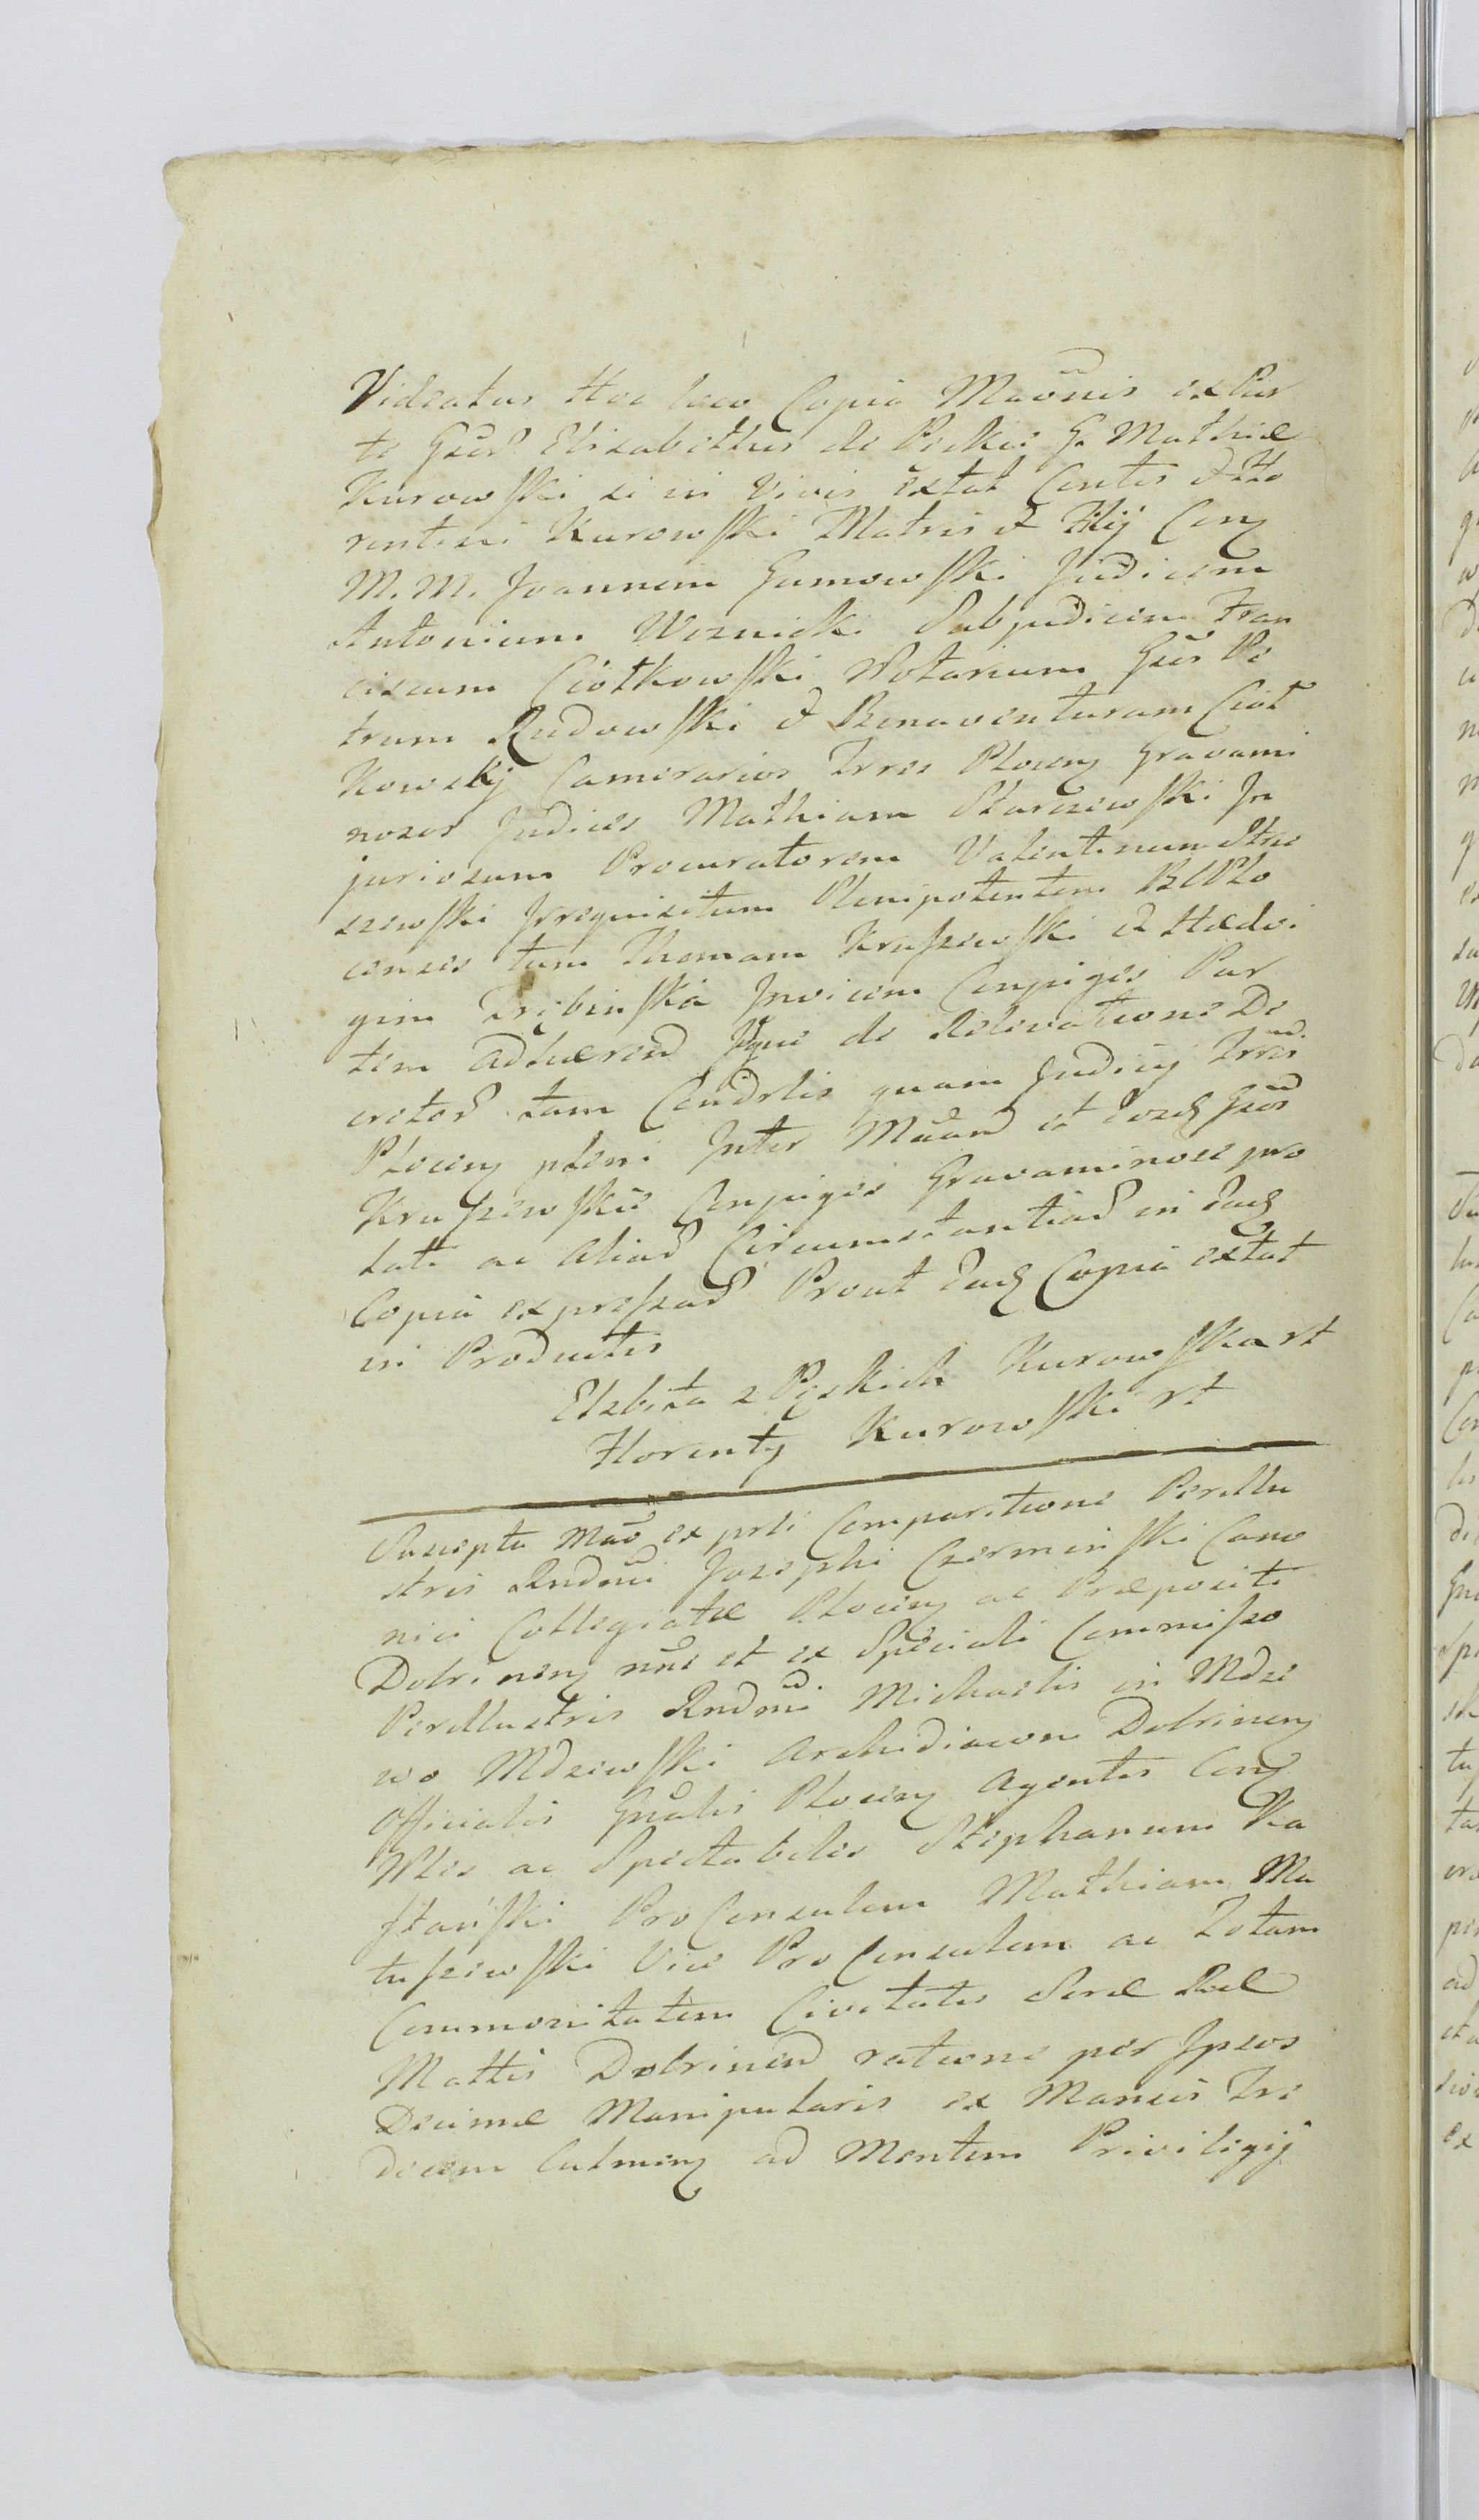 Videatur Hoc loco Copia Maõnis ex Par
te Gser Elisabethæ de Peskie G. Mathiæ
Kurowski si in vivis extat Contis & Flo
rentini Kurowski Matris & Filij Con
M. M. Joannem Gumowski Judicem
Antonium Woznicki Subjudicem Fran
ciscum Ciołkowski Notarium Gser Pe
trum Rudowski & Bonaventuram Cioł
kowskij Camerarios Trres Plocen Gravami
nosos Judices Mathiam Starczewski In
juriosum Procuratorem Valentinum Strze
szewski Irrequisitum Plenipotentem
censes tum Thomam Kruszewski et Hedvi
gim Trębinska Invicem Conjuges Par
tem adhæren de Relevatione De
cretor tam Condrlis quam Judicij Trris
Plocen pleni Inter et eosd Gser
Kruszewskie Conjuges Gravaminose pro
lati ac aliar Circumstantiar in ead
Copia expressar Prout ead Copia extat
in Productis
Elzbieta z Pęskich Kurowska rt
Florenty Kurowski rt
Suscepta Maõ ex prli Comparitione Perillu
stris Rndmi Josephi Czerminski Cano
nici Collegiatæ Plocen ac Præpositi
Dobrinen nñe et ex Speciali Commisso
Perillustris Rndmi Michaelis in Mdze
wo Mdzewski Archidiaconi Dobrinen
Officialis Gñalis Plocen Agentis Con
Nbles ac Spectabiles Stephanum Ka
stański Pro Consulem Mathiam Ma
tuszewski Vice Pro Consulem ac Totam
Commonitatem Civitatis Sacræ Ræ
Mattis Dobrinen ratione per Ipsos
Decimæ Manipularis ex Mansis Tre
decim Culmen ad Mentem Privilegij